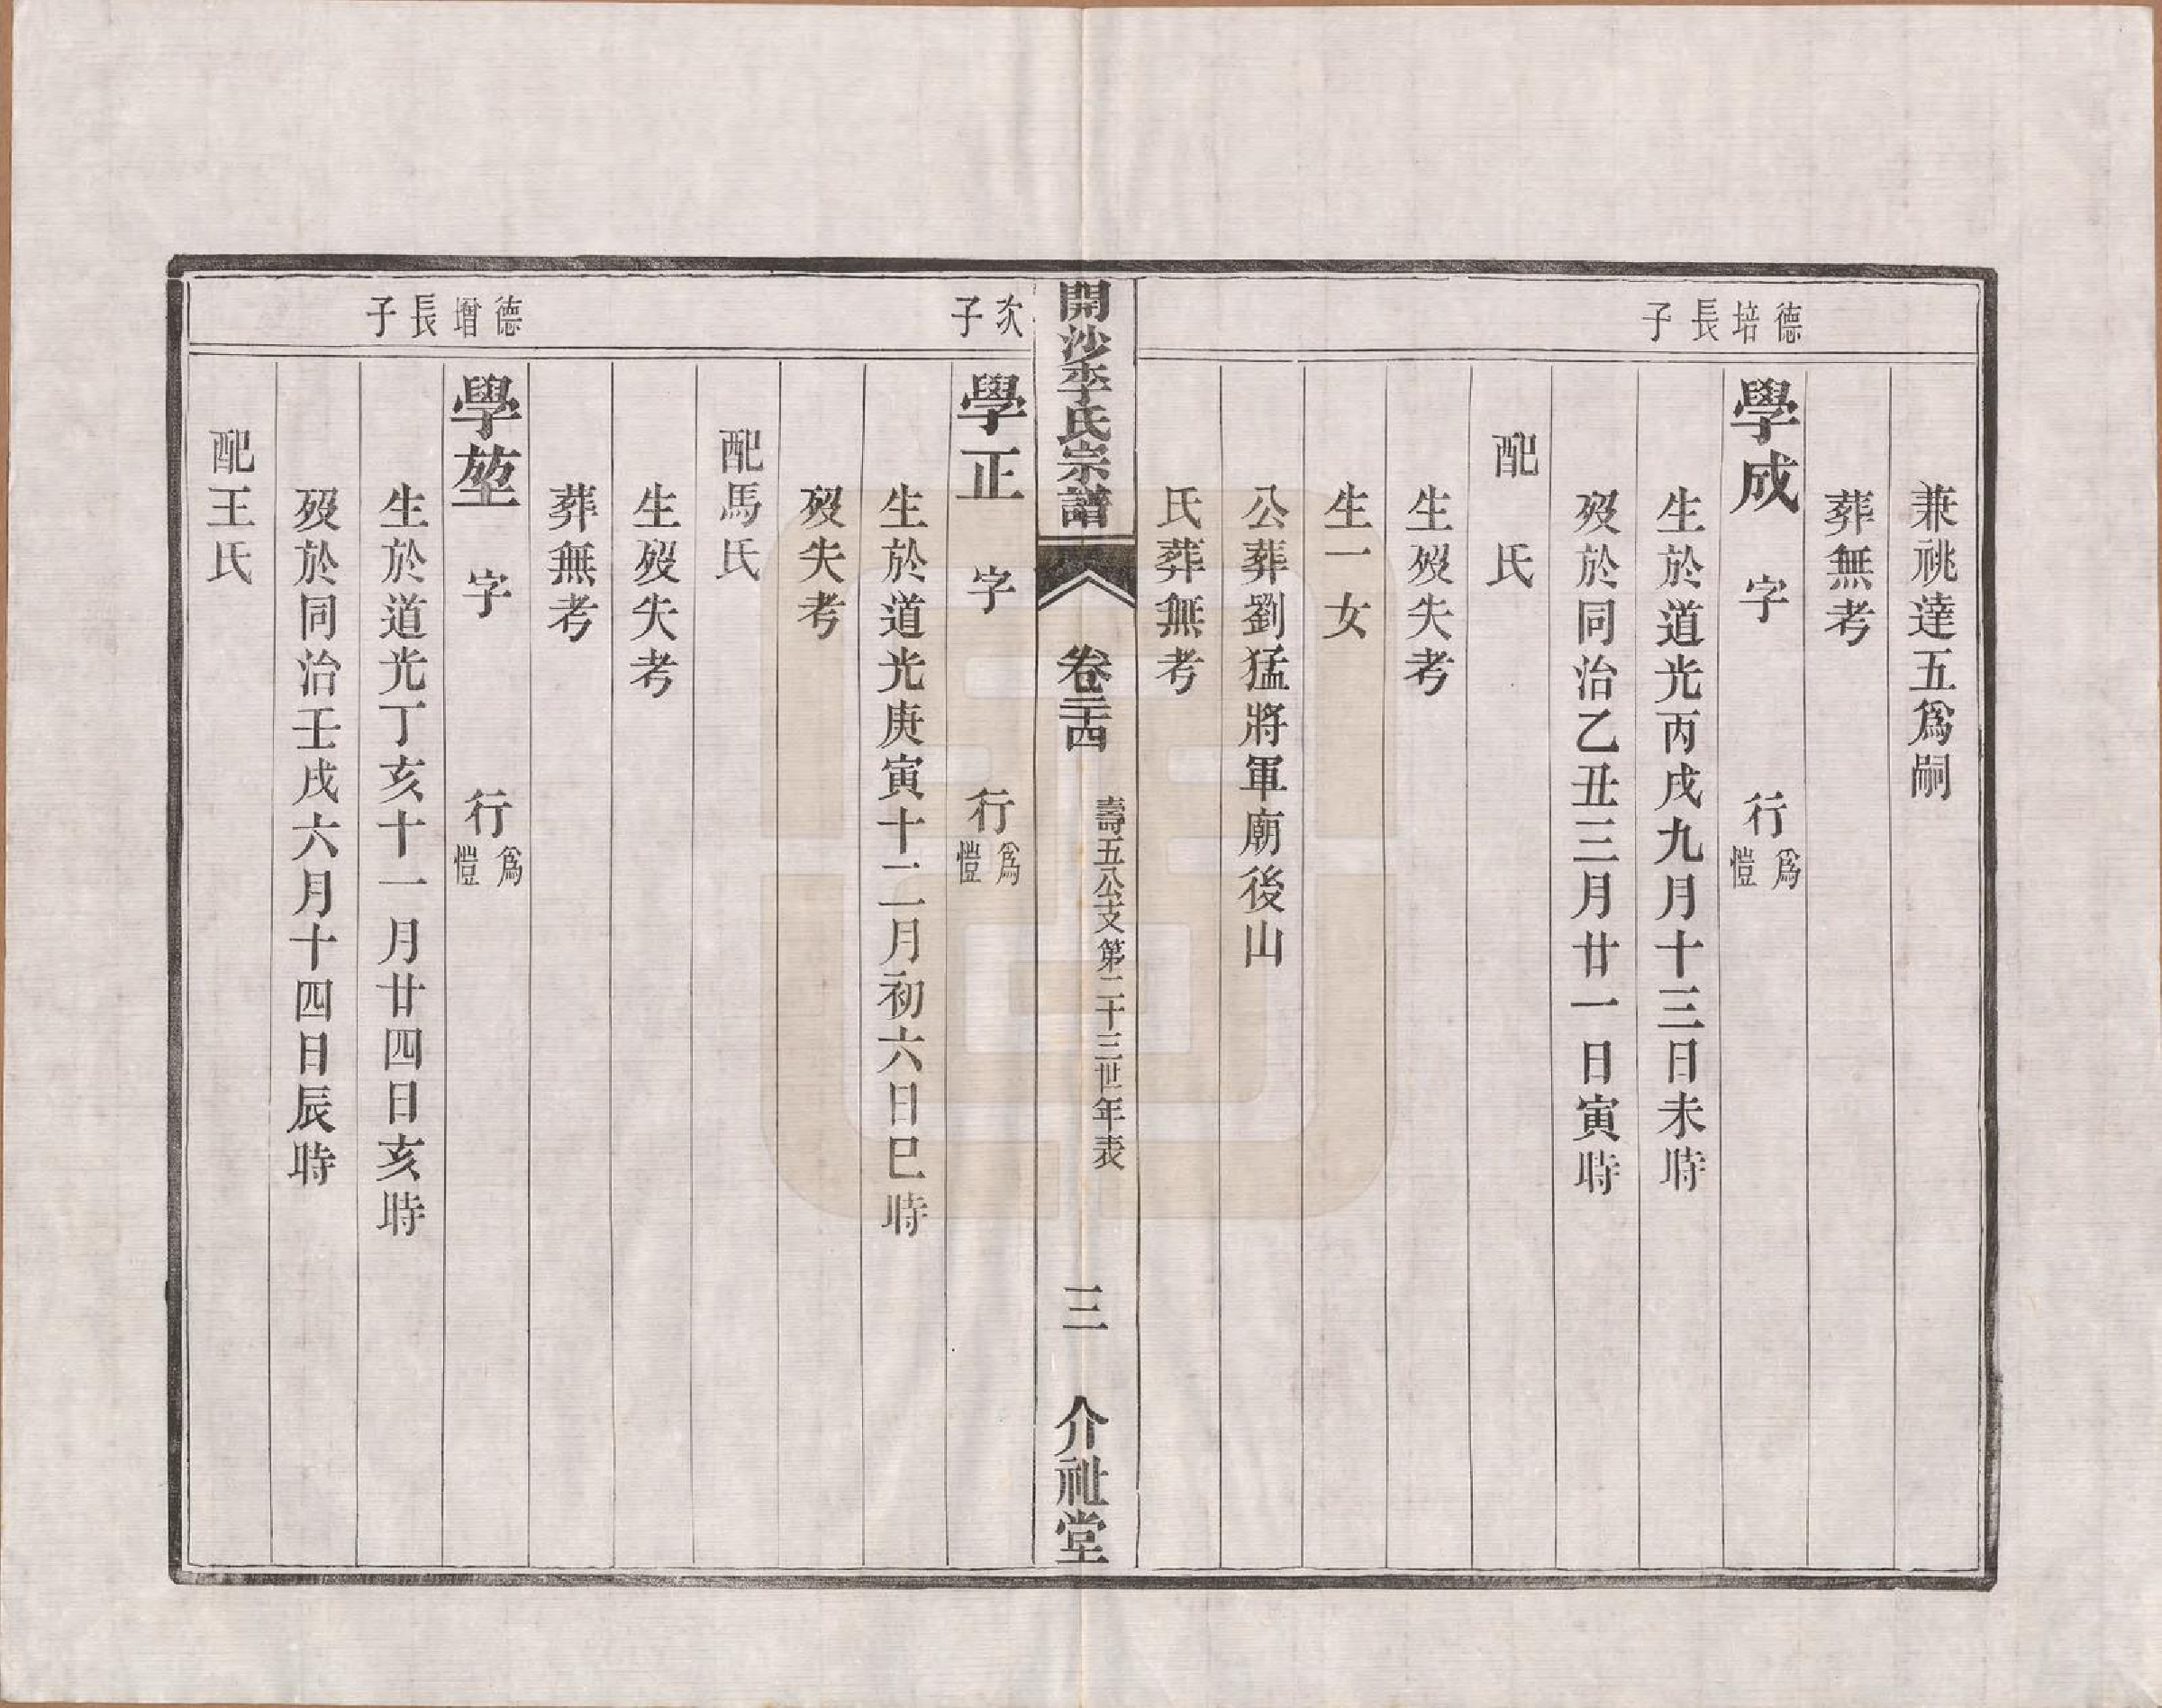 兼祧達五爲嗣
葬無考
德培長子
學成 字 行爲愷
生於道光丙戌九月十三日未時
歿於同治乙丑三月廿一日寅時
配 氏
生歿失考
生一女
公葬劉猛將軍廟後山
氏葬無考
開沙李氏宗譜 卷二十四 壽五公支第二十三世年表 三 介祉堂
次子
學正 字 行爲愷
生於道光庚寅十二月初六日巳時
歿失考
配馬氏
生歿失考
葬無考
德增長子
學堃 字 行爲愷
生於道光丁亥十一月廿四日亥時
歿於同治壬戌六月十四日辰時
配王氏